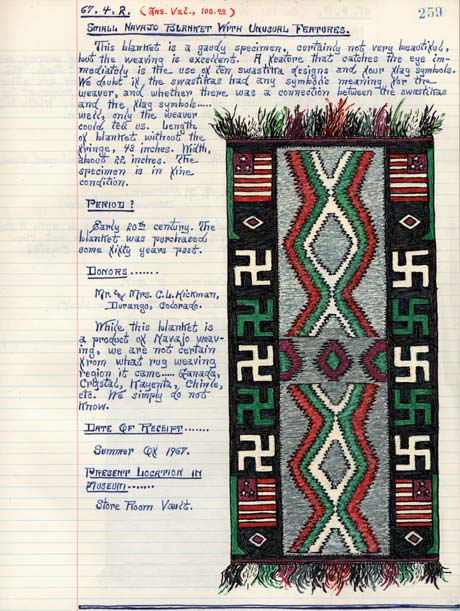 67. 4. R. (Ins. Val., 100.00)
259
Small Navajo Blanket With Unusual Features.
This blanket is a gaudy specimen, certainly not very beautiful,
but the weaving is excellent. A feature that catches the eye im-
mediately is the use of ten swastika designs and four flag symbols.
We doubt if the swastikas had any symbolic meaning for the
weaver, and whether there was a connection between the swastikas
and the flag symbols.....
well, only the weaver
could tell us. Length
of blanket without the
fringe, 43 inches. Width,
about 22 inches. The
specimen is in fine
condition.
Period ?
Early 20th century. The
blanket was purchased
some fifty years past.
Donors .......
Mr. & Mrs. C. L. Hickman,
Durango, Colorado.
While this blanket is
a product of Navajo weav-
ing, we are not certain
from what rug weaving
region it came..... Ganada,
Crystal, Kayenta, Chinle,
etc. We simply do not
know.
Date Of Receipt .......
Summer Of 1967.
Present Location in
Museum .......
Store Room Vault.